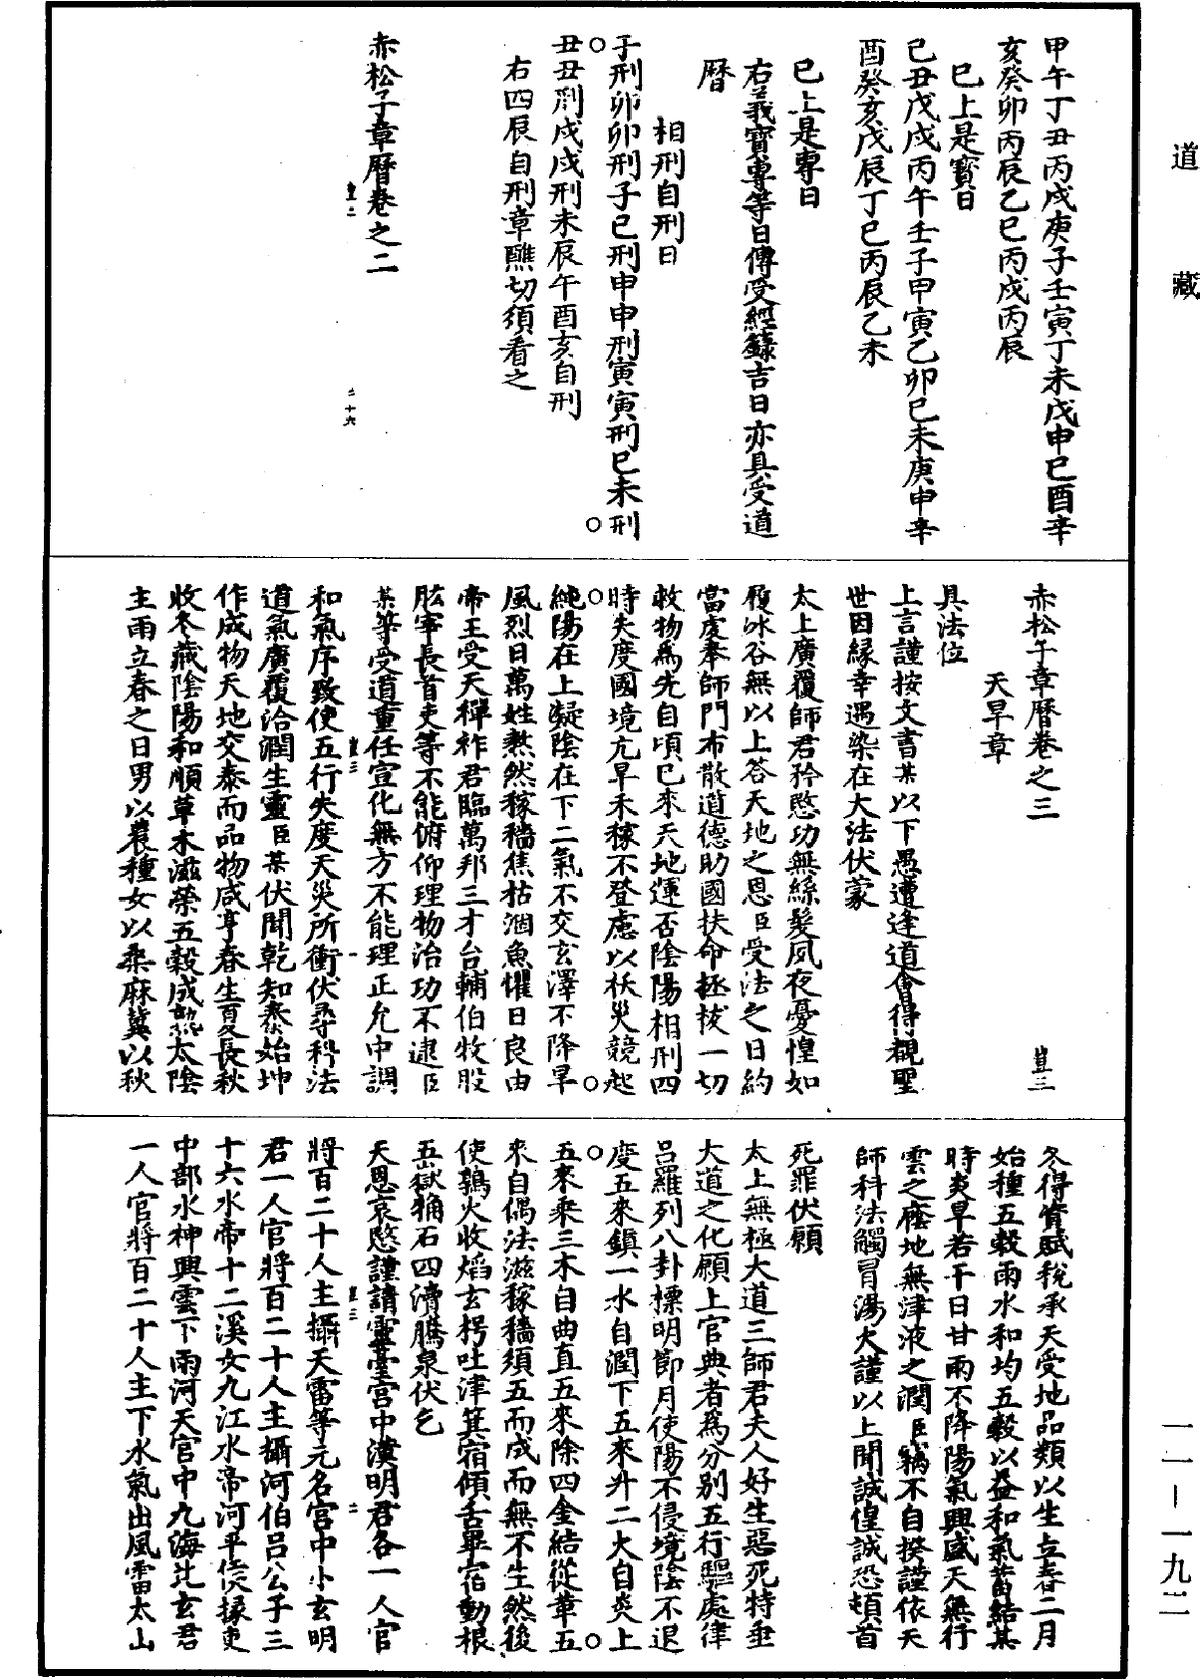 道藏
甲午丁丑丙戌庚子壬寅丁未戊申巳酉辛
亥癸卯丙辰乙巳丙戌丙辰
巳上是寳日
己丑戊戌丙午壬子甲寅乙卯巳未庚申辛
酉癸亥戊辰丁巳丙辰乙未
巳上是專日
右義寳專等日傳受經籙吉日亦具受道
曆
相刑自刑日
子刑卯卯刑子巳刑申申刑寅寅刑巳未刑
丑丑刑戌戌刑未辰午酉亥自刑
右四辰自刑章醮切須看之
赤松子章曆卷之二
豈二
二十六
赤松子章曆卷之三
豈三
天旱章
具法位
上言謹按文書某以下愚遭逢道會得覩聖
世因縁幸遇染在大法伏蒙
太上廣覆師君矜愍功無絲髮夙夜憂惶如
履冰谷無以上答天地之恩臣受法之日約
當虔奉師門布散道德助國扶命拯拔一切
救物爲先自頃巳來天地運否陰陽相刑四
時失度國境亢旱禾稼不登慮以秋災競起
純陽在上凝陰在下二氣不交玄澤不降旱
風烈日萬姓熬然稼穡焦枯涸魚懼日良由
帝王受天禪祚君臨萬邦三才台輔伯牧股
肱宰長首吏等不能俯仰理物治功不逮臣
某等受道重任宣化無方不能理正允中調
豈三
一
和氣序致使五行失度天災所衝伏尋科法
道氣廣覆洽潤生靈臣某伏聞乾知泰始坤
作成物天地交泰而品物咸亨春生夏長秋
收冬藏陰陽和順草木滋榮五穀成熟太陰
主雨立春之日男以農種女以桑麻冀以秋
冬得資賦稅承天受地品類以生立春二月
始種五穀雨水和均五穀以益和氣蓄結某
時炎旱若干日甘雨不降陽氣興盛天無行
雲之應地無津液之潤臣竊不自揆謹依天
師科法觸冒湯火謹以上聞誠惶誠恐頓首
死罪伏願
太上無極大道三師君夫人好生惡死特垂
大道之化願上官典者爲分別五行驅處律
呂羅列八卦標明節月使陽不侵境陰不退
度五來鎮一水自潤下五來升二火自炎上
五來乘三木自曲直五來除四金結從革五
來自偶法滋稼穡須五而成而無不生然後
使鶉火收焰玄枵吐津箕宿傾舌畢宿動根
五嶽桷石四瀆騰泉伏乞
天恩哀愍謹請靈臺宮中漢明君各一人官
豈三
二
將百二十人主攝天雷等元名宮中小玄明
君一人官將百二十人主攝河伯呂公子三
十六水帝十二溪女九江水帝河平侯掾吏
中部水神興雲下雨河天宮中九海北玄君
一人官將百二十人主下水氣出風雷太山
一一—一九二